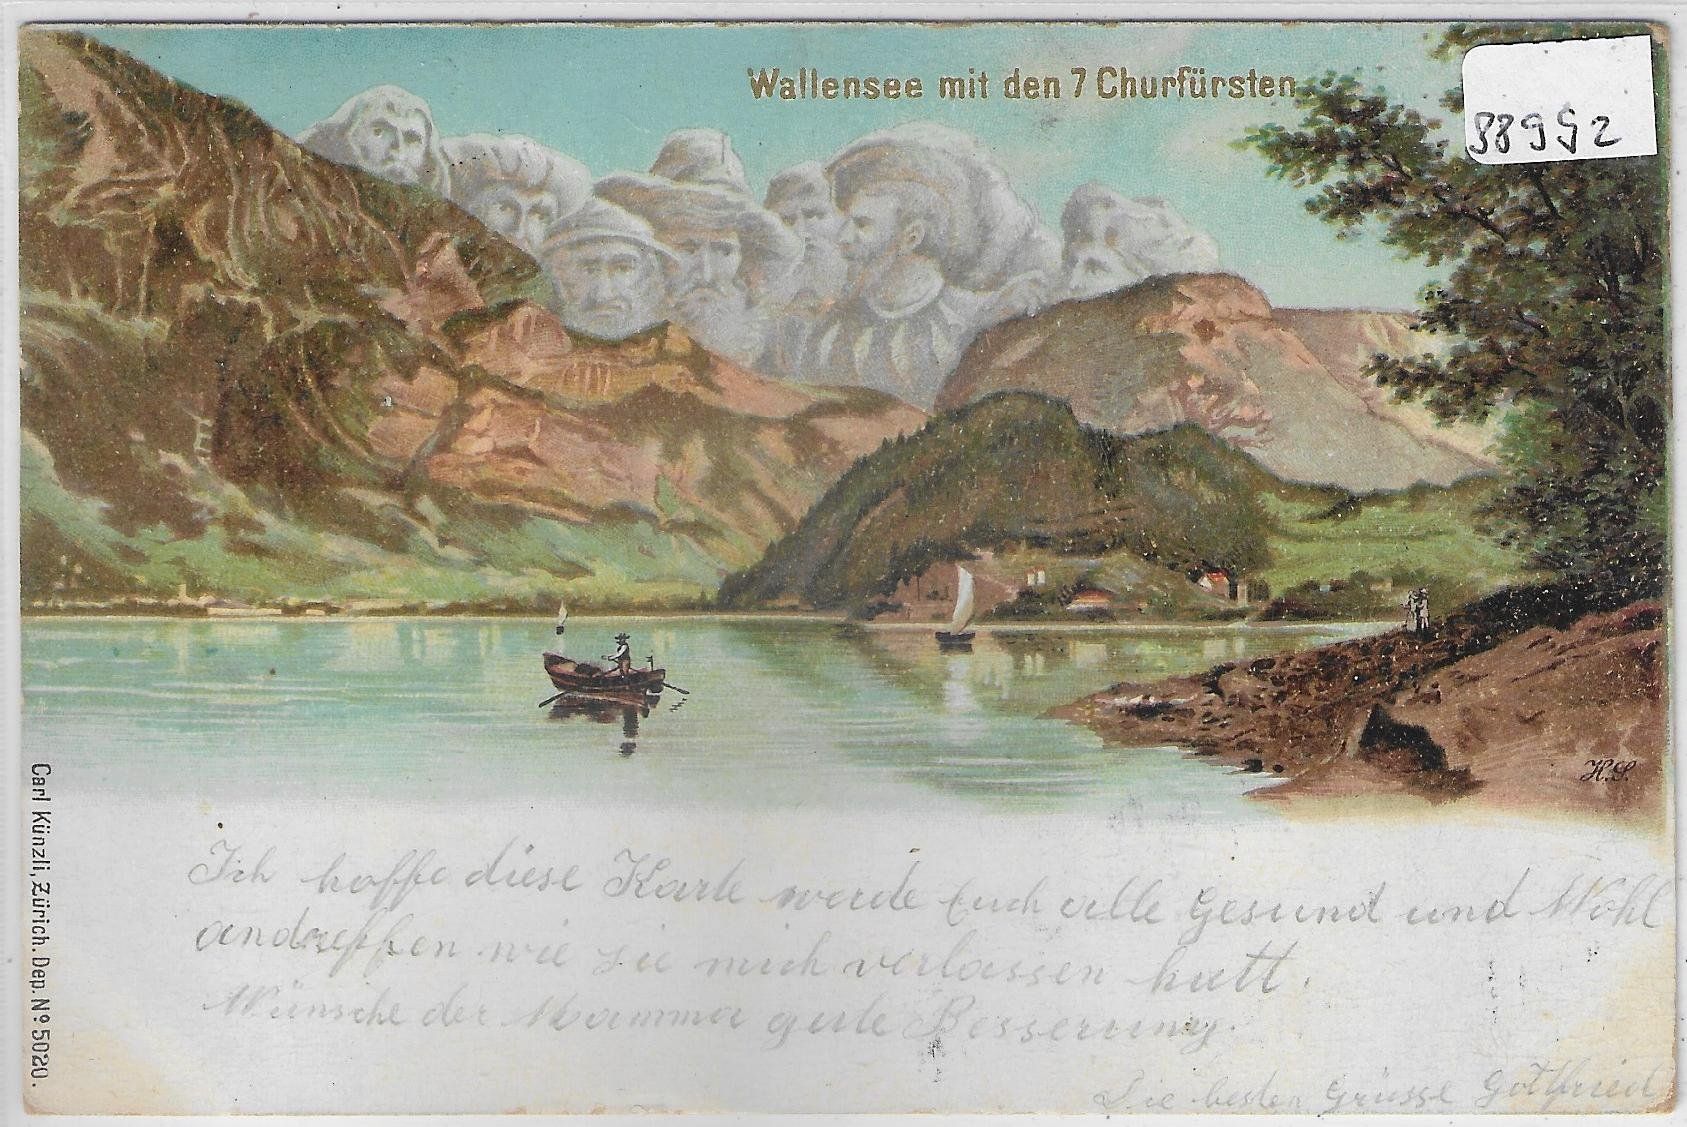 Wallensee mit den 7 Churfürsten
88952
H.S.
Carl Künzli, Zürich. Dep. No 5020.
Ich hoffe diese Karte werde Euch alle Gesund und Wohl
andreffen wie sie mich verlassen hatt.
Wünsche der Mamma gute Besserung.
Die besten Grüsse Gottfried